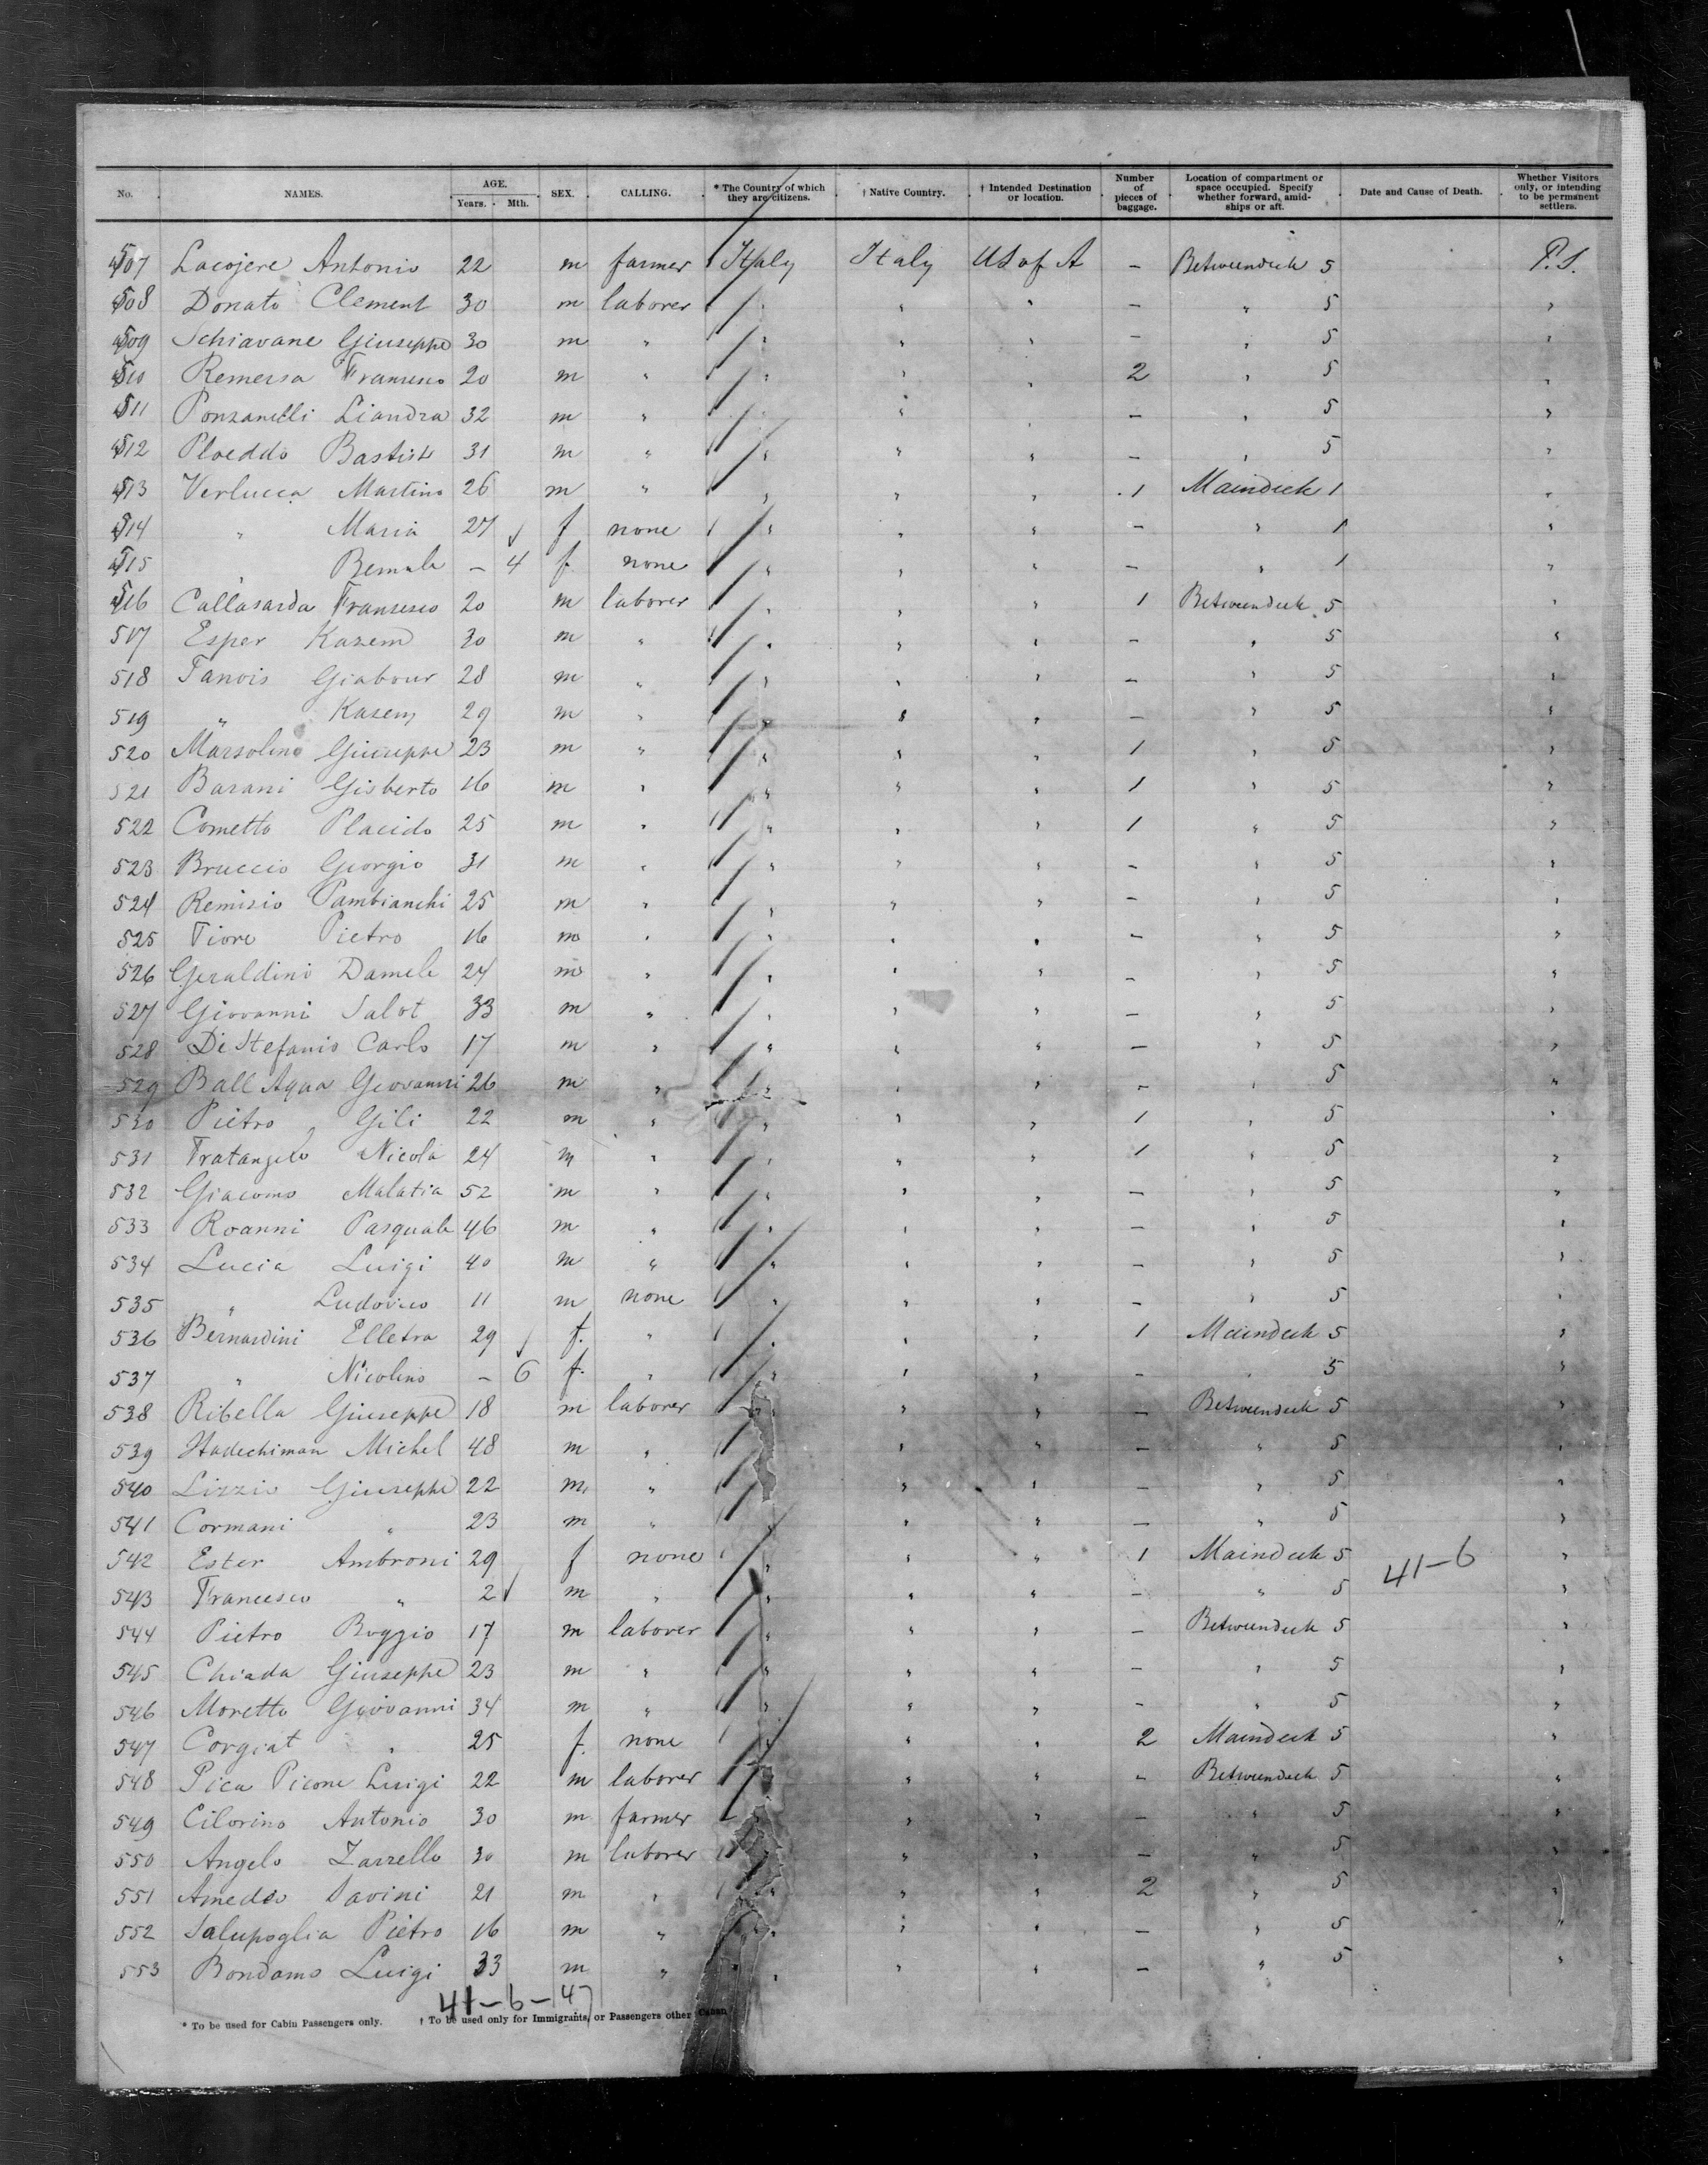 No. NAMES. AGE. Years. Mth. SEX. CALLING. * The Country of which they are citizens. † Native Country. † Intended Destination or location. Number of pieces of baggage. Location of compartment or space occupied. Specify whether forward, amidships or aft. Date and Cause of Death. Whether Visitors only, or intending to be permanent settlers.
507 Lacojere Antonio 22 m farmer Italy Italy US of A – Betweendeck 5 P.S.
508 Donato Clement 30 m laborer " " " – " 5 "
509 Schiavane Giuseppe 30 m " " " " – " 5 "
510 Remersa Fransesco 20 m " " " " 2 " 5 "
511 Ponzanelli Liandra 32 m " " " " – " 5 "
512 Ploeddo Bastist 31 m " " " " – " 5 "
513 Verlucca Martino 26 m " " " " 1 Maindeck 1 "
514 " Maria 27 f none " " " – " 1 "
515 " – 4 f none " " " – " 1 "
516 Callasarda Fransesco 20 m laborer " " " 1 Betweendeck 5 "
517 Esper Kazem 30 m " " " " – " 5 "
518 Tanois Giabour 28 m " " " " – " 5 "
519 " Kasem 29 m " " " " – " 5 "
520 Marsolino Giuseppe 23 m " " " " 1 " 5 "
521 Barani Gisberto 16 m " " " " 1 " 5 "
522 Cometto Placido 25 m " " " " 1 " 5 "
523 Bruccio Georgio 31 m " " " " – " 5 "
524 Remisio Pambianchi 25 m " " " " – " 5 "
525 Fiore Pietro 16 m " " " " – " 5 "
526 Geraldini Damele 24 m " " " " – " 5 "
527 Giovanni Salot 33 m " " " " – " 5 "
528 Di Stefanio Carlo 17 m " " " " – " 5 "
529 Ball Aqua Giovanni 26 m " " " " – " 5 "
530 Pietro Gili 22 m " " " " 1 " 5 "
531 Fratangelo Nicola 24 m " " " " 1 " 5 "
532 Giacomo Malatia 52 m " " " " – " 5 "
533 Roanni Pasquale 46 m " " " " – " 5 "
534 Lucia Luigi 40 m " " " " – " 5 "
535 " Ludovico 11 m none " " " – " 5 "
536 Bernardini Elletra 29 f. " " " " 1 Maindeck 5 "
537 " Nicolino – 6 f. " " " " – " 5 "
538 Ribella Giuseppe 18 m laborer " " " – Betweendeck 5 "
539 Hadechiman Michel 48 m " " " " – " 5 "
540 Lizzio Giuseppe 22 m " " " " – " 5 "
541 Cormani " 23 m " " " " – " 5 "
542 Ester Ambroni 29 f none " " " 1 Maindeck 5 "
41–6
543 Francesco " 2 m " " " " – " 5 "
544 Pietro Boggio 17 m laborer " " " – Betweendeck 5 "
545 Chiada Giuseppe 23 m " " " " – " 5 "
546 Moretto Giovanni 34 m " " " " – " 5 "
547 Corgiat " 25 f. none " " " 2 Maindeck 5 "
548 Pica Picone Luigi 22 m laborer " " " – Betweendeck 5 "
549 Cilorino Antonio 30 m farmer " " " – " 5 "
550 Angelo Zarrello 30 m laborer " " " – " 5 "
551 Amedeo Savini 21 m " " " " 2 " 5 "
552 Salupoglia Pietro 16 m " " " " – " 5 "
553 Bondamo Luigi 33 m " " " " – " 5 "
41–6–47
* To be used for Cabin Passengers only. † To be used only for Immigrants, or Passengers other